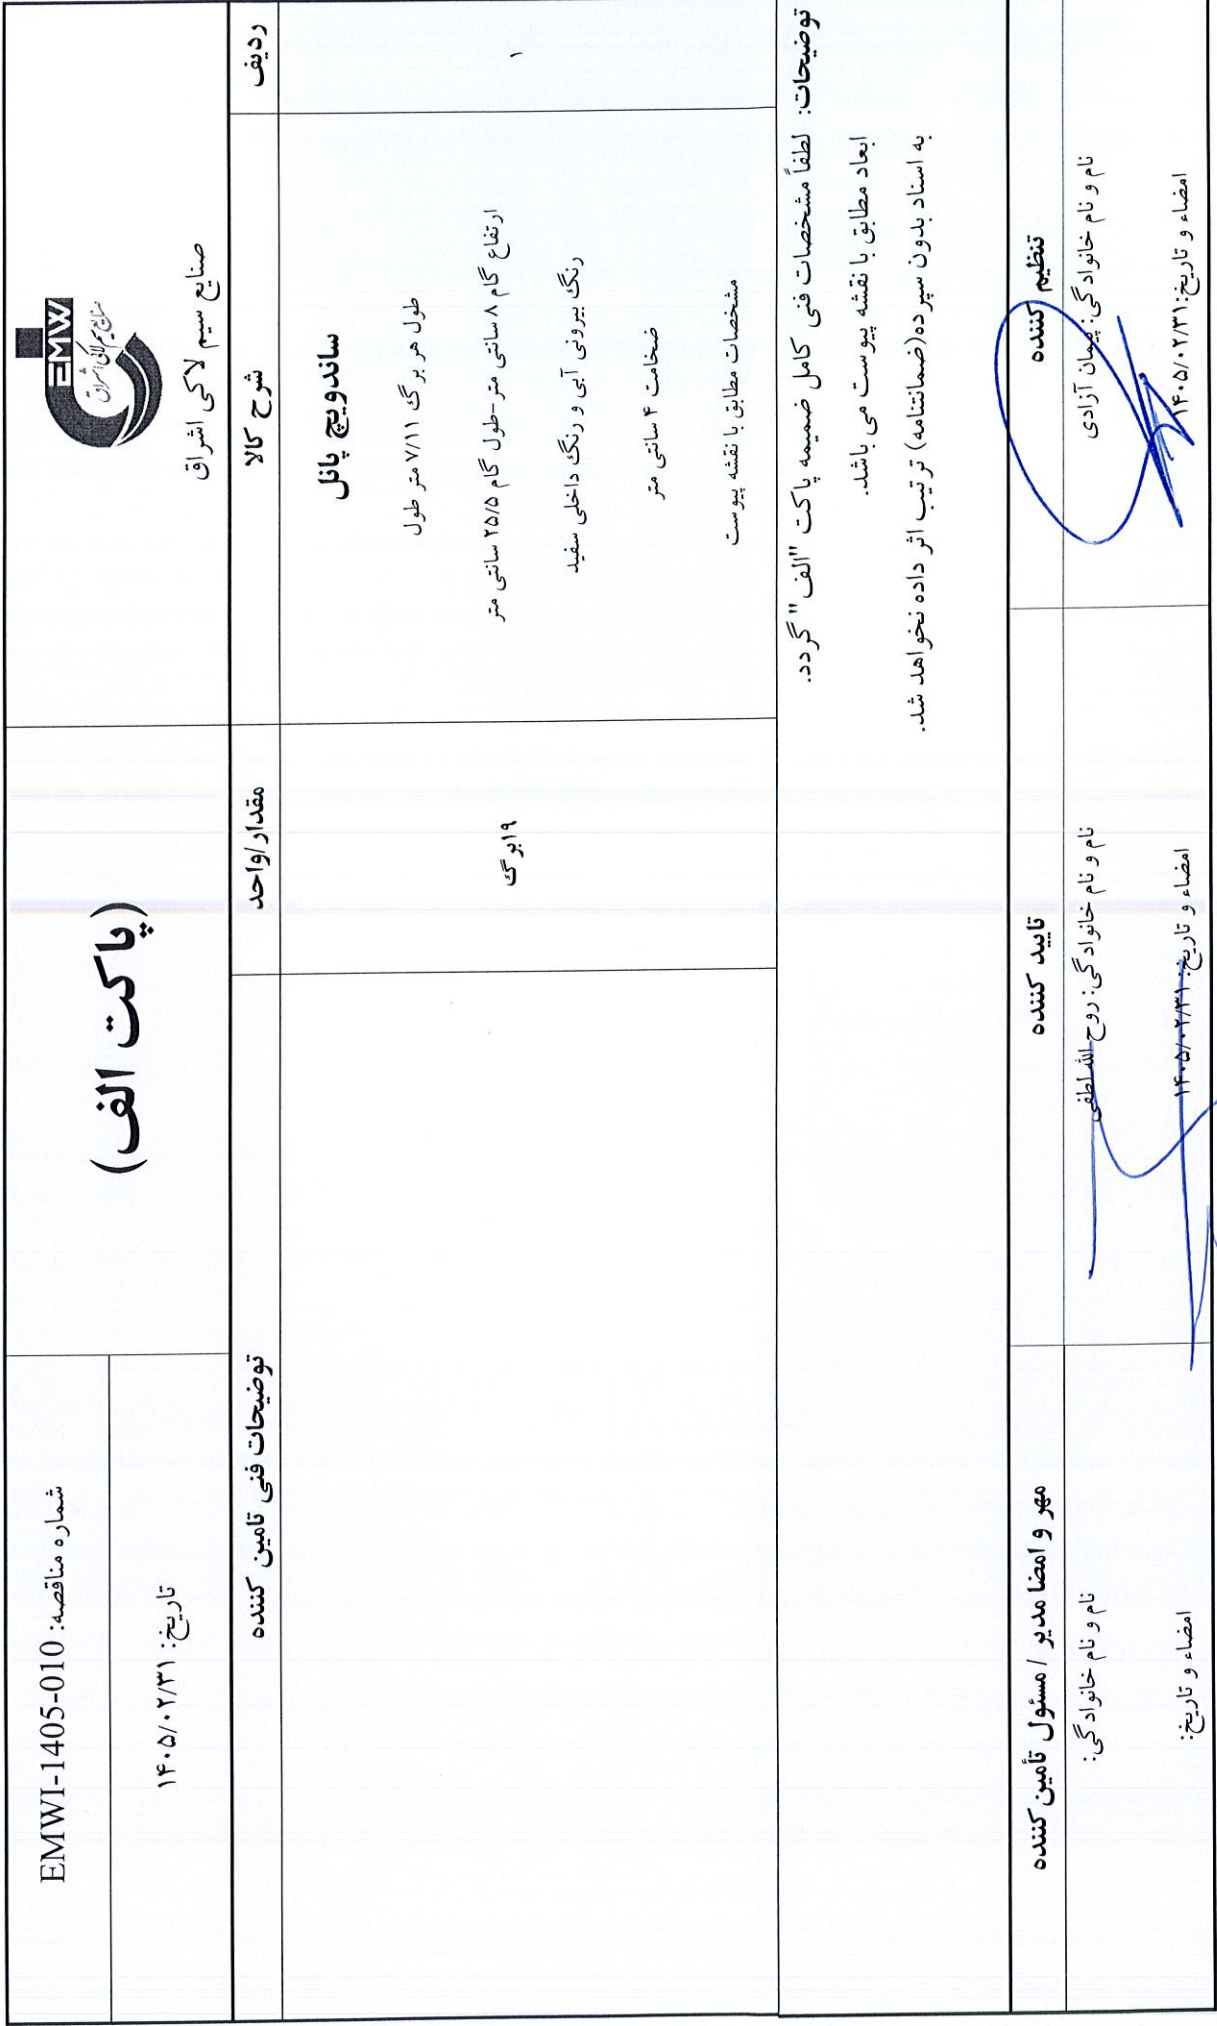 EMWI
صنایع سیم لاکی اشراق
صنایع سیم لاکی اشراق
(پاکت الف)
شماره مناقصه: EMWI-1405-010
تاریخ: ۱۴۰۵/۰۲/۳۱
ردیف
شرح کالا
مقدار/واحد
توضیحات فنی تامین کننده
۱
ساندویچ پانل
طول هر برگ ۷/۱۱ متر طول
ارتفاع گام ۸ سانتی متر-طول گام ۲۵/۵ سانتی متر
رنگ بیرونی آبی و رنگ داخلی سفید
ضخامت ۴ سانتی متر
مشخصات مطابق با نقشه پیوست
۱۹برگ
توضیحات: لطفاً مشخصات فنی کامل ضمیمه پاکت "الف" گردد.
ابعاد مطابق با نقشه پیوست می باشد.
به اسناد بدون سپرده(ضمانتنامه) ترتیب اثر داده نخواهد شد.
تنظیم کننده
تایید کننده
مهر و امضا مدیر / مسئول تأمین کننده
نام و نام خانوادگی: پیمان آزادی
نام و نام خانوادگی: روح الله لطفی
نام و نام خانوادگی:
امضاء و تاریخ: ۱۴۰۵/۰۲/۳۱
امضاء و تاریخ: ۱۴۰۵/۰۲/۳۱
امضاء و تاریخ: